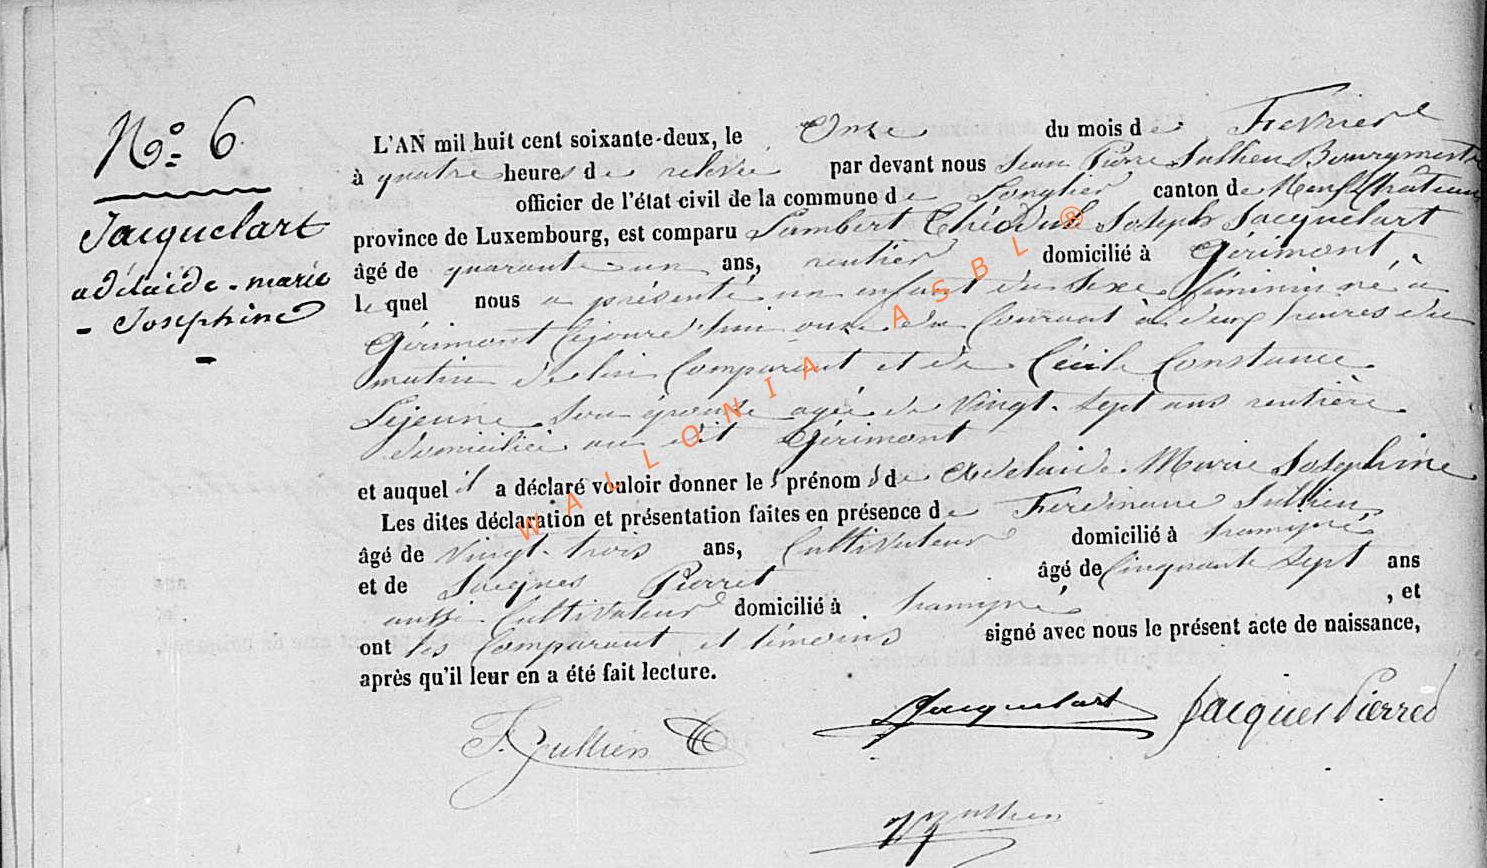 No= 6
Jacquelart
adélaïde-marie
- Josephine
-
L'AN mil huit cent soixante-deux, le Onze du mois de Fevrier
à quatre heures de relevée par devant nous Jean Pierre Bourgmestre
officier de l'état civil de la commune de Longlier canton de Neufchâteau
province de Luxembourg, est comparu Lambert Joseph Jacquelart
âgé de quarante-un ans, rentier domicilié à Gérimont,
lequel nous a présenté un enfant du sexe féminin né à
Gérimont cejourd'hui onze du Courant à deux heures du
matin de lui Comparant et de Cécile Constance
Lejeune son épouse agée de Vingt-sept ans rentière
domiciliée au dit Gérimont
et auquel il a déclaré vouloir donner les prénoms de Adelaide Marie Josephine
Les dites déclaration et présentation faites en présence de Ferdinand
âgé de Vingt-trois ans, Cultivateur domicilié à
et de Jacques Pierret âgé de Cinquante Sept ans
aussi Cultivateur domicilié à , et
ont les Comparant et témoins signé avec nous le présent acte de naissance,
après qu'il leur en a été fait lecture.
Jacquelart Jacques Pierred
WALLONIA ASBL ®